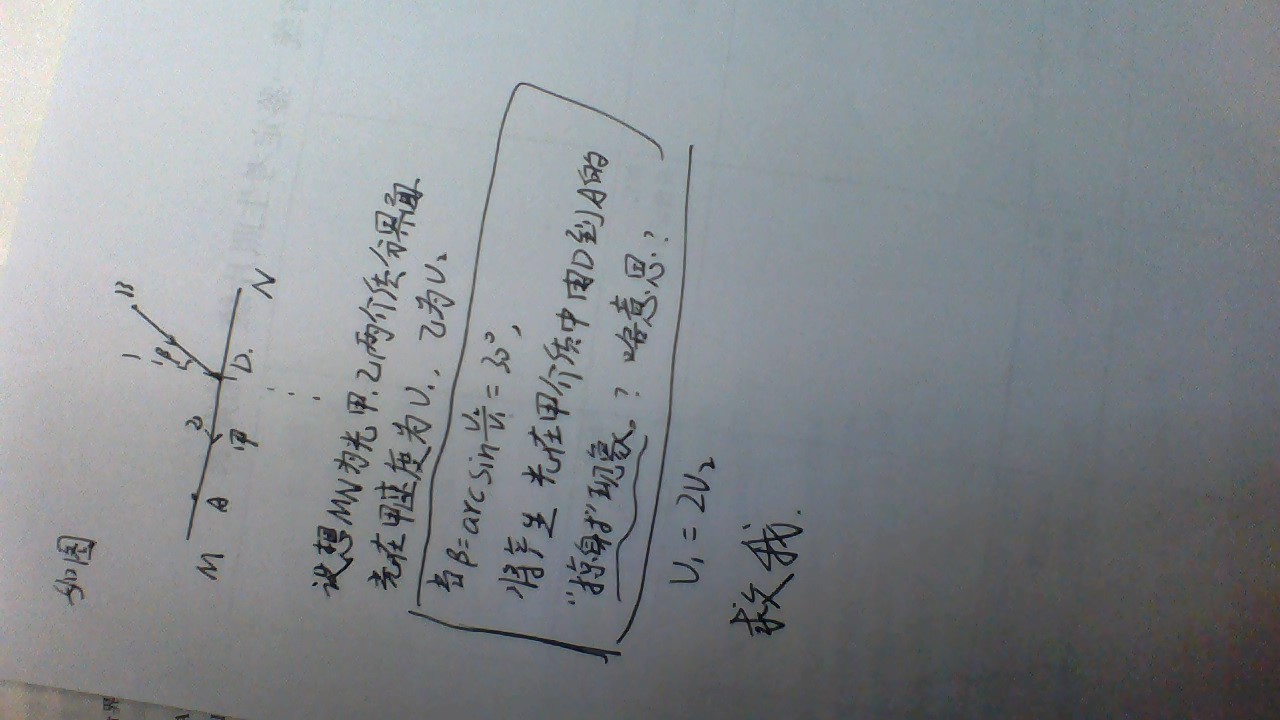 如图
1
B
β
2
D.
N
甲
A
M
设想MN为光甲.乙两个介质分界面
光在甲速度为V₁, 乙为V₂
当β=arcsin V₂/V₁=30°,
将产生 光在甲介质中由D到A的
"掠射"现象。? 啥意思.?
V₁=2V₂
救我.